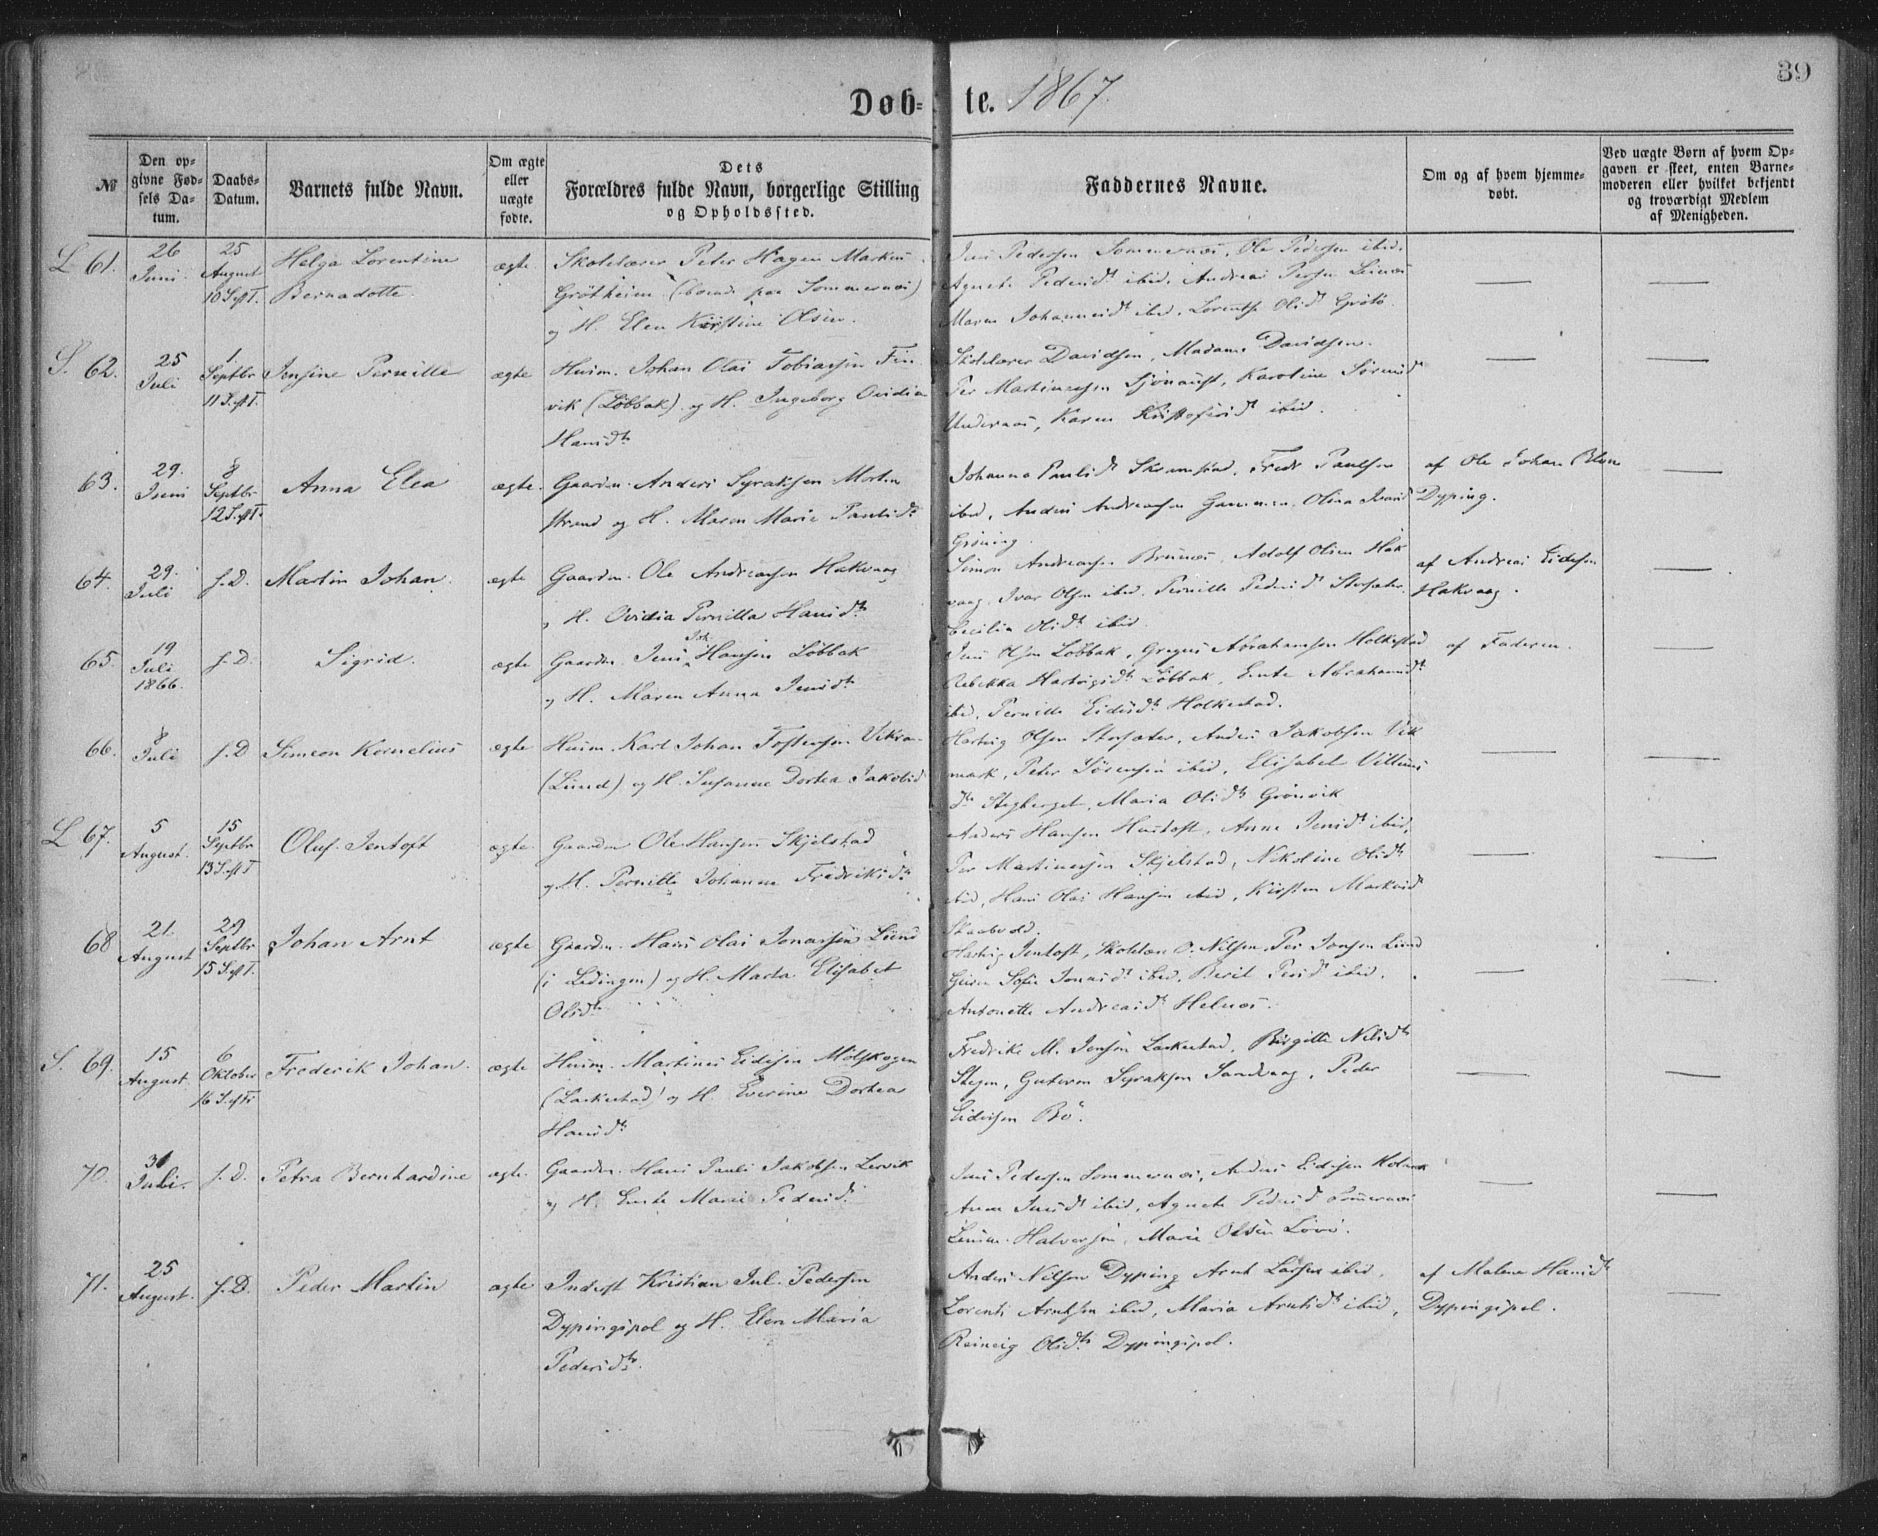 39
Døb-te. 1867.
№
Den op-
givne Fød-
sels Da-
tum.
Daabs-
Datum.
Barnets fulde Navn.
Om ægte
eller
uægte
fødte.
Dets
Forældres fulde Navn, borgerlige Stilling
og Opholdssted.
Faddernes Navne.
Om og af hvem hjemme-
døbt.
Ved uægte Børn af hvem Op-
gaven er skeet, enten Barne-
moderen eller hvilket bekjendt
og troværdigt Medlem
af Menigheden.
L 61.
26
Juni
25
August
10 S. eft T.
Helga Lorentine
Bernadotte.
ægte
Skolelærer Peter Hagen Markus
Grötheim (boende paa Sommernæs)
og H. Elen Kirstine Olsen.
Jens Pedersen Sommernæs, Ole Pedersen ibid.
Agnete Pedersdtr ibid, Andreas Persen Leinæs
Maren Johannesdtr ibid, Lorentse Olsdtr Grötö
S. 62.
25
Juli
1
Septbr
11 S. eft T.
Jensine Pernille
ægte
Husm. Johan Olai Tobiassen Fin
vik (Löbbak) og H. Ingeborg Ovidia
Hansdtr
Skolelærer Davidsen, Madame Davidsen.
Per Martinussen Sjönaust, Karoline Sörensdtr
Undernæs, Karen Kristofersdtr ibid.
63.
29.
Juni
8
Septbr
12 S. eft T.
Anna Elea
ægte.
Gaardm. Anders Syraksen Morten
strand og H. Maren Marie Paulsdtr
Johanna Paulsdtr Skramstad, Fredr Paulsen
ibid, Anders Andreassen Gammen, Olina Ivarsdtr
Gröning.
af Ole Johan
Dyping.
64.
29.
Juli
s. D.
Martin Johan.
ægte
Gaardm. Ole Andreassen Hakvaag
og H. Ovidia Pernilla Hansdtr
Simon Andreassen Brunæs, Adolf Olsen Hak
vaag, Ivar Olsen ibid. Pernille Pedersdtr Storsæter
Cecilia Olsdtr ibid.
af Andreas Eidissen
Hakvaag.
65.
19
Juli
1866.
s. D.
Sigrid.
ægte
Gaardm. Jens Joh. Hansen Löbbak
og H. Maren Anna Jensdtr
Jens Olsen Löbbak, Gregus Abrahamsen Holkestad
Rebekka Hartvigsdtr Löbbak, Ente Abrahamsdtr
ibid, Pernille Eidesdtr Holkestad.
af Faderen.
66.
8
Juli
s. D
Simeon Kornelius
ægte
Husm. Karl Johan Tostensen Vikra
(Lund) og H. Susanne Dortea Jakobsd
Hartvig Olsen Storsæter, Anders Jakobsen Vik
mark, Peter Sörensen ibid, Elisabet Villums
dtr Stegberget, Maria Olsdtr Grönvik
L 67.
5
August.
15
Septbr
13 S. eft T
Oluf Jentoft
ægte
Gaardm Ole Hansen Skjelstad
og H. Pernille Johanna Fredriksdtr
Anders Hansen Hustoft, Anne Jensdtr ibid,
Per Martinussen Skjelstad, Nikoline Olsdtr
ibid, Hans Olai Hansen ibid, Kirsten Markusd
Skaabvold.
68
21.
August
29
Septbr
15 S. eft T.
Johan Arnt
ægte
Gaardm. Hans Olai Jonassen Lund
(i Lödingen) og H. Marta Elisabet
Olsdtr
Hartvig Jentoft, Skolelær O. Nilsen, Per Jonsen Lund
Guren Sofie Jonasdtr ibid, Berit Persdtr ibid.
Antonette Andreasdtr Helnæs.
S. 69.
15
August.
6
Oktober
16 S. eft Tr
Frederik Johan.
ægte
Husm. Martinus Eidissen Molskogen
(Laskestad) og H. Everine Dortea
Hansdtr
Fredrike M. Jensen Laskestad, Birgitte Nilsdtr
Stegen, Guttorm Syraksen Sandvaag, Peder
Eidissen Bö.
70.
31
Juli.
s. D.
Petra Bernhardine
ægte.
Gaardm. Hans Pauli Jakobsen Lervik
og H. Ente Marie Pedersdtr
Jens Pedersen Sommernæs, Anders Eidissen
Anne Jensdtr ibid, Agnete Pedersd Sommernæs
Halvorsen, Marie Olsen Lövö.
71.
25
August.
s. D.
Peder Martin
ægte
Inderst Kristian Jul. Pedersen
Dypingspol og H. Elen Maria
Pedersdtr.
Anders Nilsen Dyping, Arnt Larsen ibid,
Lorents Arntsen ibid, Maria Arntsdtr ibid,
Olsdtr Dypingspol.
af Malene Hansdtr
Dypingspol.